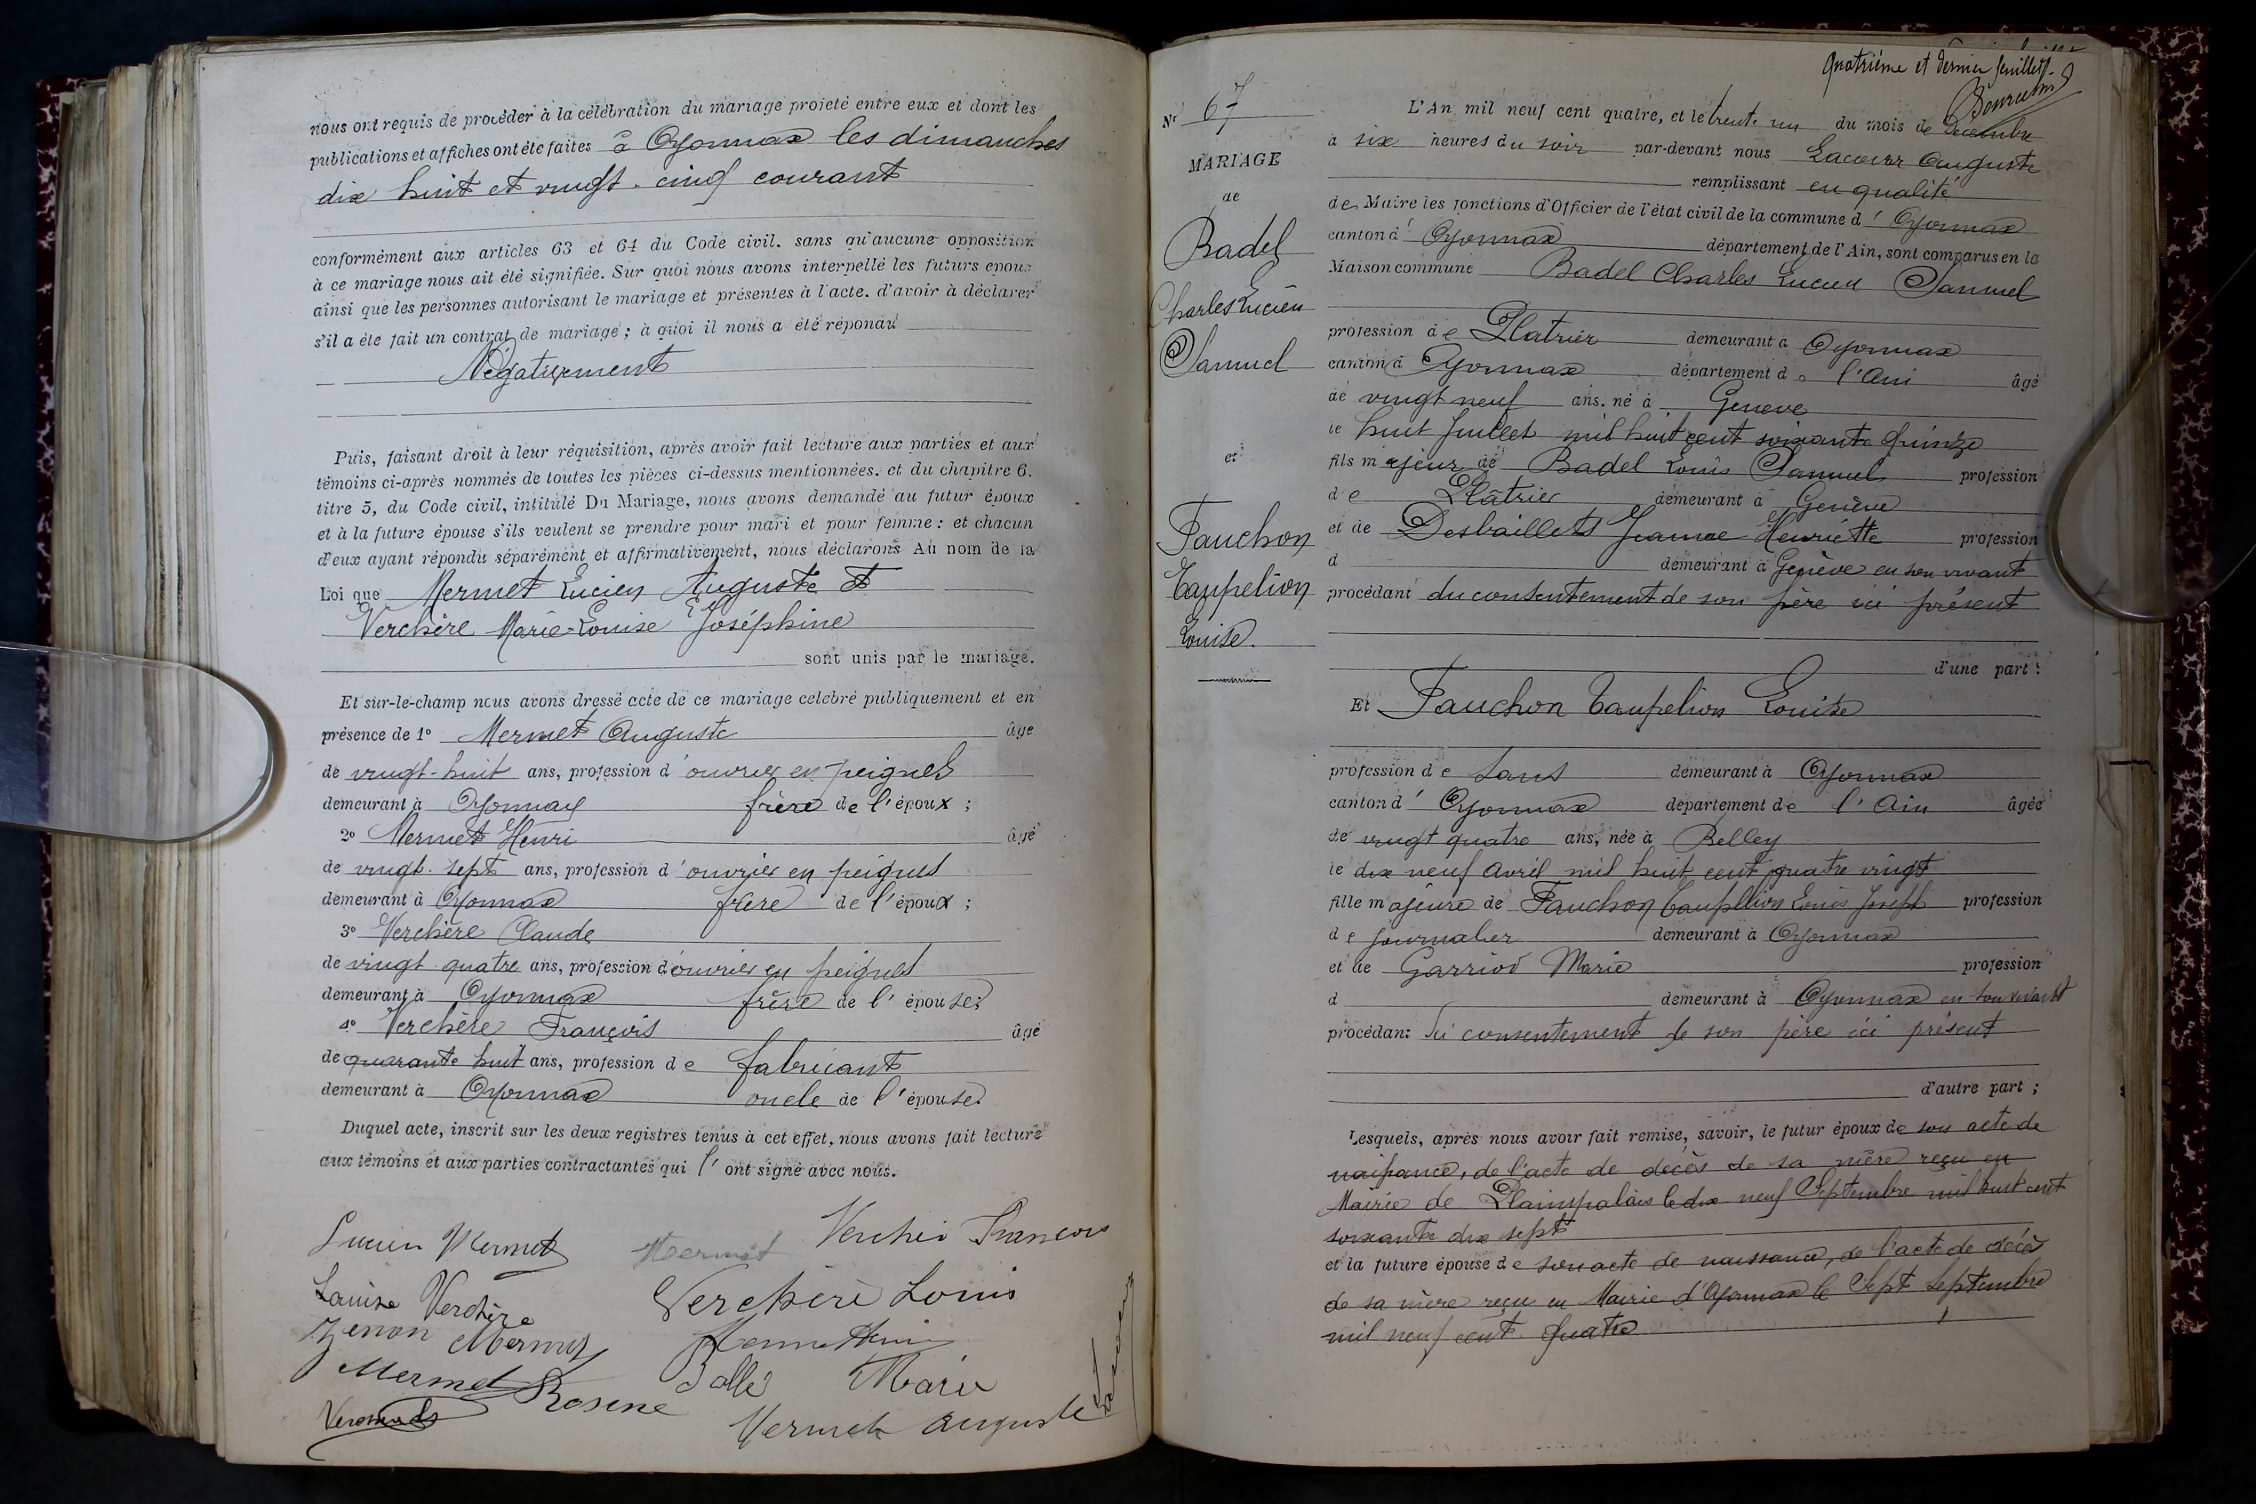 nous ont requis de procéder à la célébration du mariage projeté entre eux et dont les
publications et affiches ont été faites à Oyonnax les dimanches
dix huit et vingt-cinq courant
conformément aux articles 63 et 64 du Code civil, sans qu'aucune opposition
à ce mariage nous ait été signifiée. Sur quoi nous avons interpellé les futurs époux
ainsi que les personnes autorisant le mariage et présentes à l'acte, d'avoir à déclarer
s'il a été fait un contrat de mariage ; à quoi il nous a été répondu
Négativement
Puis, faisant droit à leur réquisition, après avoir fait lecture aux parties et aux
témoins ci-après nommés de toutes les pièces ci-dessus mentionnées, et du chapitre 6,
titre 5, du Code civil, intitulé Du Mariage, nous avons demandé au futur époux
et à la future épouse s'ils veulent se prendre pour mari et pour femme : et chacun
d'eux ayant répondu séparément et affirmativement, nous déclarons Au nom de la
Loi que Mermet Lucien Auguste et
Verchère Marie-Louise Joséphine
sont unis par le mariage.
Et sur-le-champ nous avons dressé acte de ce mariage célébré publiquement et en
présence de 1º Mermet Auguste âgé
de vingt-huit ans, profession d'ouvrier en peignes
demeurant à Oyonnax frère de l'époux ;
2º Mermet Henri âgé
de vingt-sept ans, profession d'ouvrier en peignes
demeurant à Oyonnax frère de l'époux ;
3º Verchère Claude
de vingt quatre ans, profession d'ouvrier en peignes
demeurant à Oyonnax frère de l'épouse ;
4º Verchère François âgé
de quarante huit ans, profession de fabricant
demeurant à Oyonnax oncle de l'épouse.
Duquel acte, inscrit sur les deux registres tenus à cet effet, nous avons fait lecture
aux témoins et aux parties contractantes qui l'ont signé avec nous.
Lucien Mermet Mermet Verchère François
Louise Verchère Verchère Louis
Zenon Mermet Mermet Henri
Mermet Rosine Marie
Mermet Auguste
Lacour
Quatrième et dernier feuillet.
Nº 67
MARIAGE
de
Badel
Charles Lucien
Samuel
et
Fauchon
Taupelion
Louise.
L'An mil neuf cent quatre, et le trente-un du mois de Décembre
à six heures du soir par-devant nous Lacour Auguste
remplissant en qualité
de Maire les fonctions d'Officier de l'état civil de la commune d'Oyonnax
canton d'Oyonnax département de l'Ain, sont comparus en la
Maison commune Badel Charles Lucien Samuel
profession de Platrier demeurant à Oyonnax
canton d'Oyonnax département de l'Ain âgé
de vingt neuf ans, né à Genève
le huit Juillet mil huit cent soixante quinze
fils majeur de Badel Louis Samuel profession
de Platrier demeurant à Genève
et de Desbaillets Jeanne Henriette profession
d demeurant à Genève en son vivant
procédant du consentement de son père ici présent
d'une part :
Et Fauchon Taupelion Louise
profession de sans demeurant à Oyonnax
canton d'Oyonnax département de l'Ain âgée
de vingt quatre ans, née à Belley
le dix neuf Avril mil huit cent quatre vingt
fille majeure de Fauchon Taupelion Louis Joseph profession
de journalier demeurant à Oyonnax
et de Garriod Marie profession
d demeurant à Oyonnax en son vivant
procédant du consentement de son père ici présent
d'autre part ;
Lesquels, après nous avoir fait remise, savoir, le futur époux de son acte de
naissance, de l'acte de décès de sa mère reçu en
Mairie de Plainpalais le dix neuf Septembre mil huit cent
soixante dix sept
et la future épouse de son acte de naissance, de l'acte de décès
de sa mère reçu en Mairie d'Oyonnax le Sept Septembre
mil neuf cent quatre